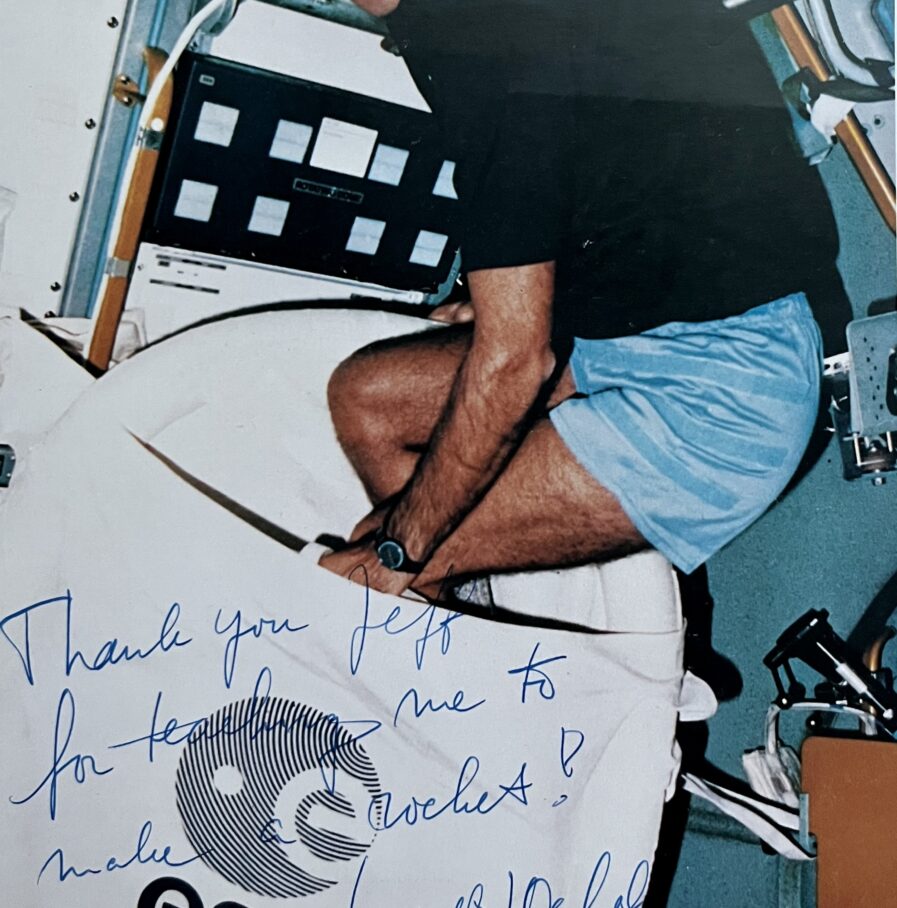 Thank you Jeff
for teaching me to
make a rocket!